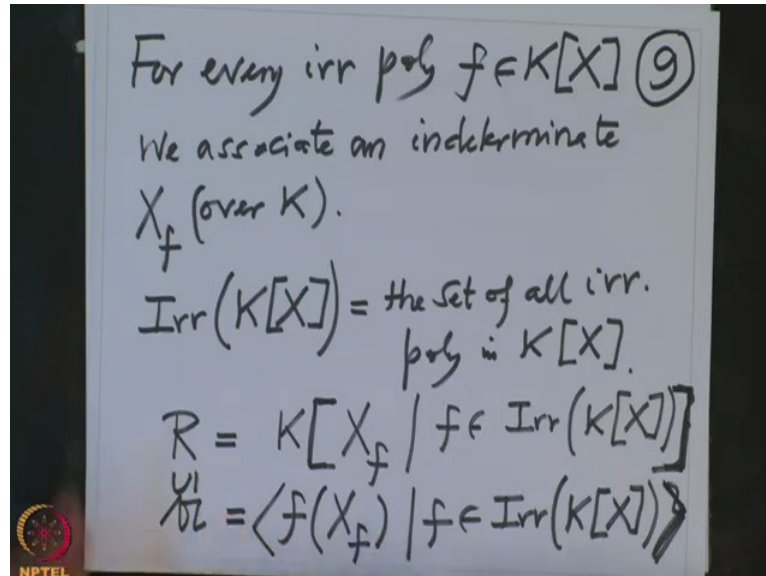 For every irr poly f ∈ K[X] ⑨
We associate an indeterminate
X_f (over K).
Irr(K[X]) = the set of all irr.
poly in K[X].
R = K[X_f | f ∈ Irr(K[X])]
∪|
𝔄 = ⟨f(X_f) | f ∈ Irr(K[X])⟩
NPTEL